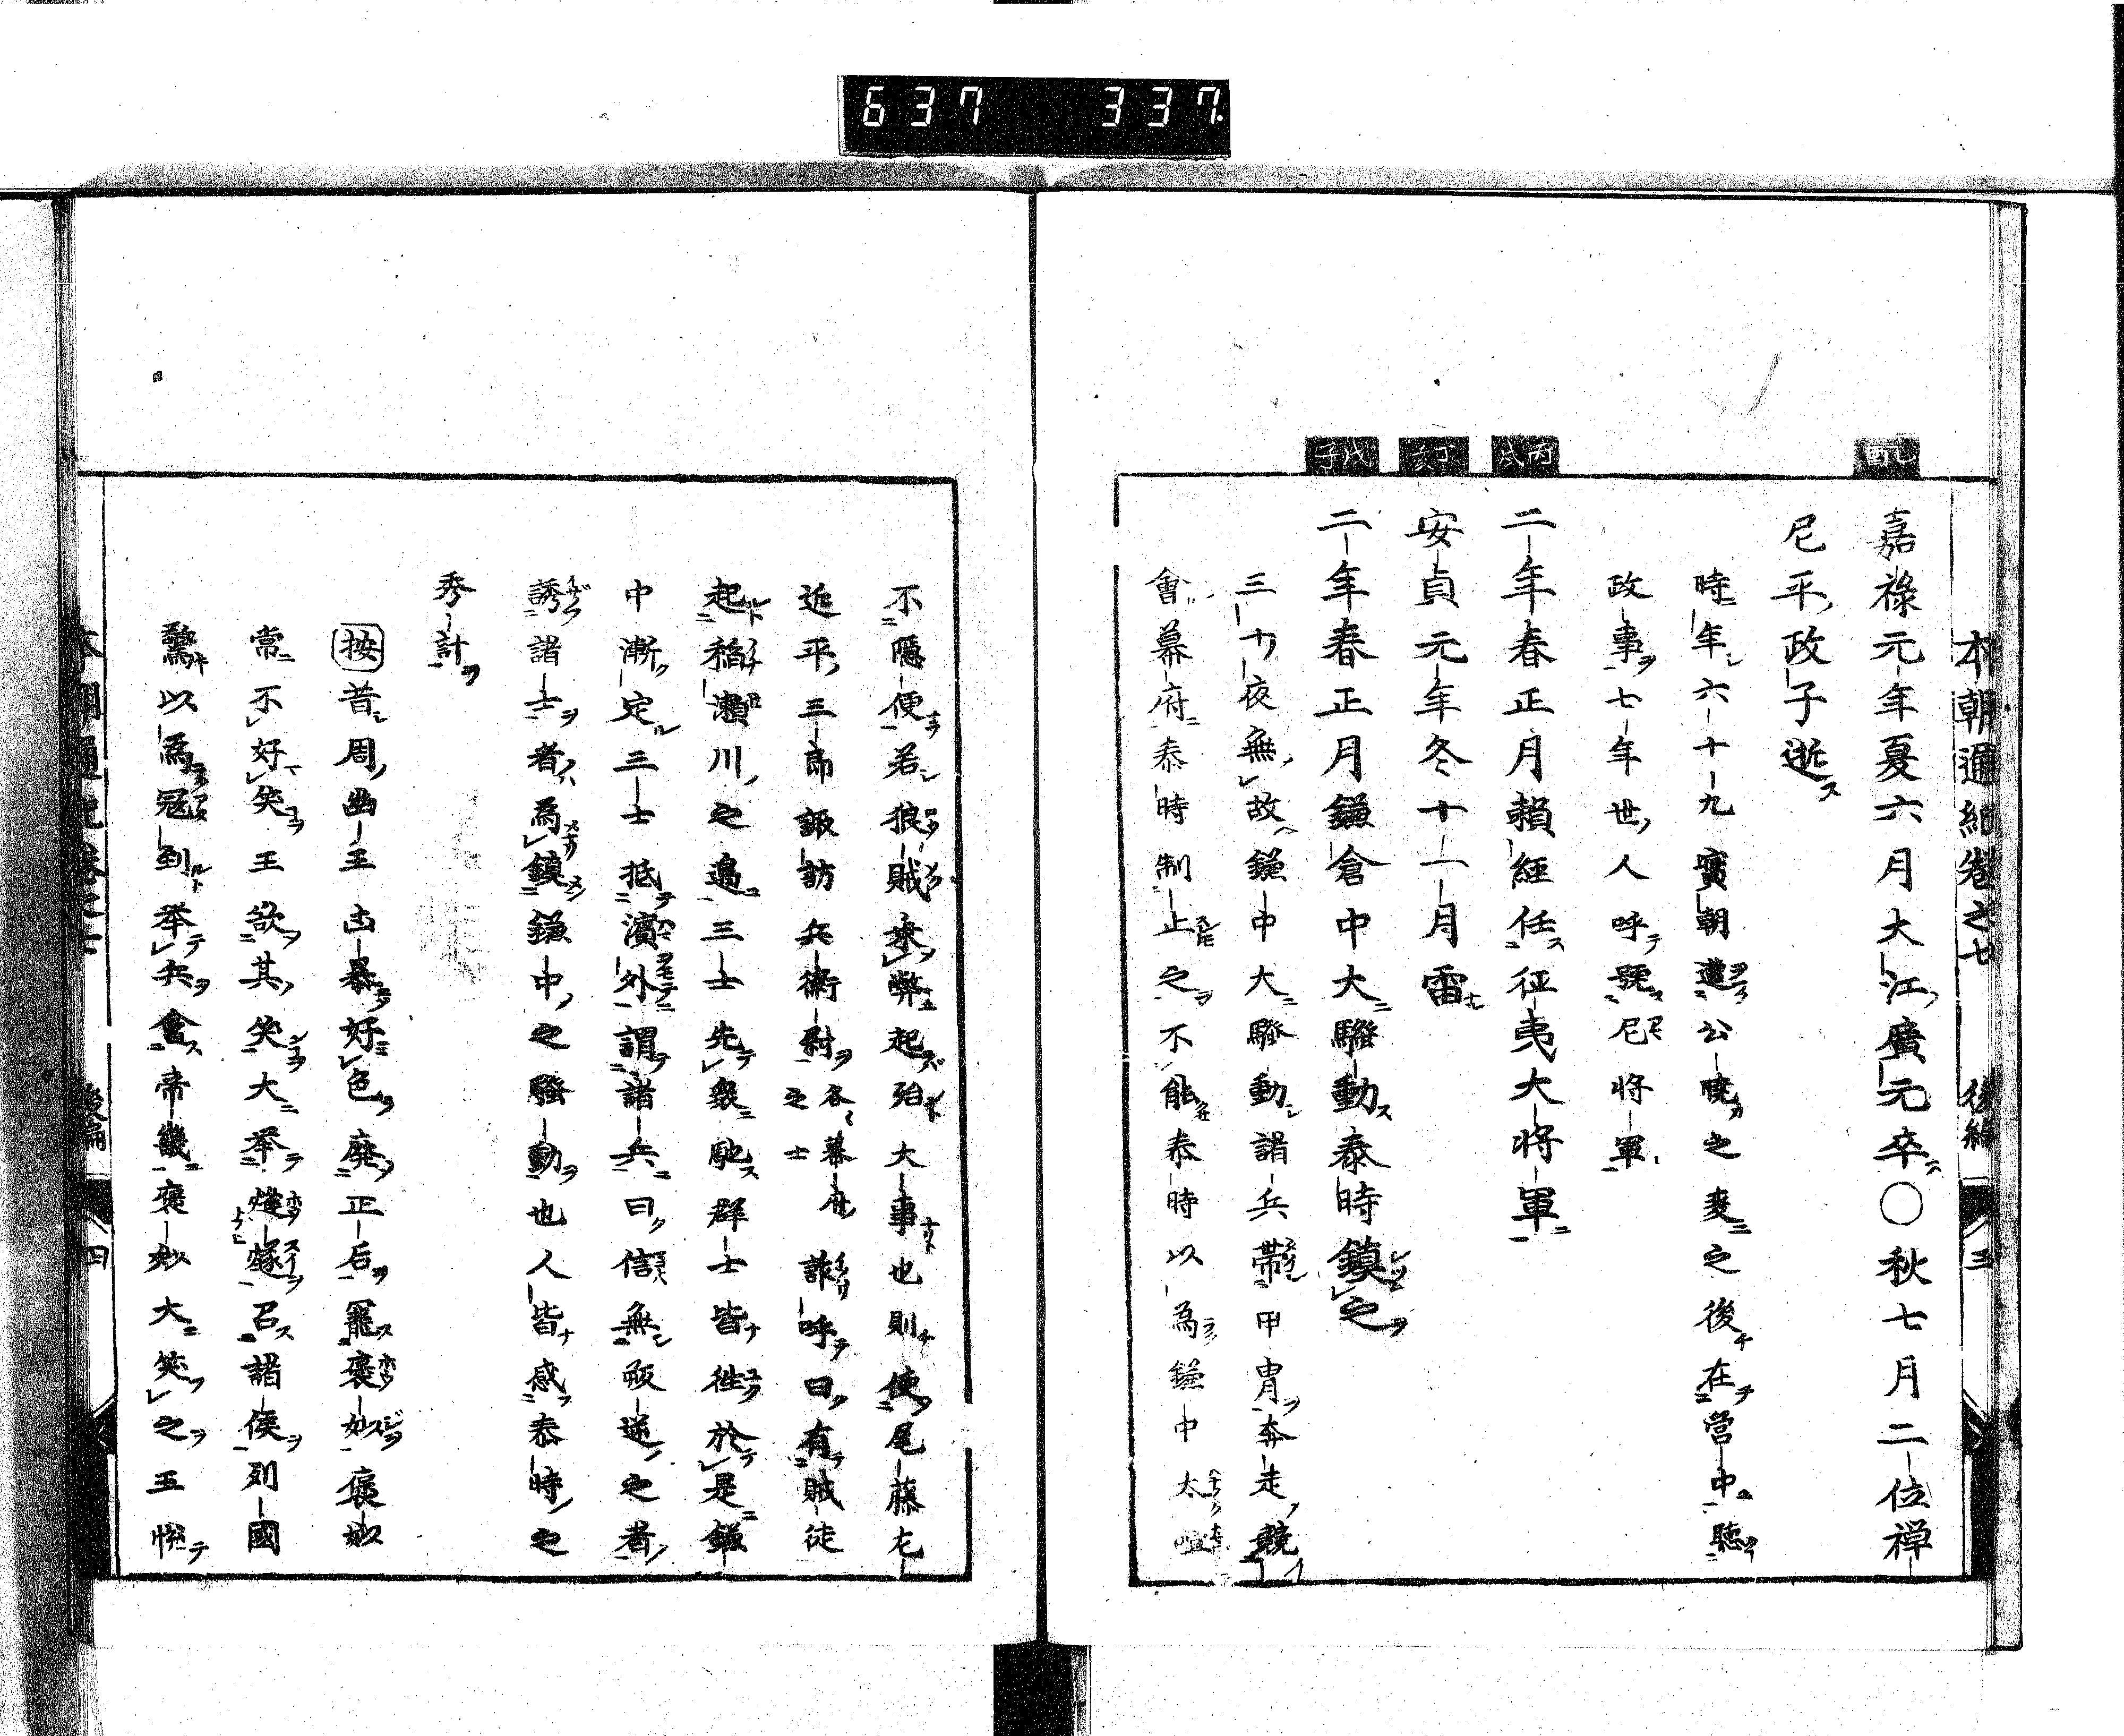 637 337.
本朝通紀卷之七 後編 三
乙酉
嘉祿元年夏六月大江廣元卒〇秋七月二位禅
尼平政子逝ス
時年六十九實朝遭公曉之変之後在營中聽
政事七年世人呼號尼將軍
丙戌
二年春正月賴經任征夷大將軍
丁亥
安貞元年冬十一月雷
戊子
二年春正月鎌倉中大騷動泰時鎮之
三十夜無故鎌中大騷動諸兵帶甲冑奔走競
會幕府泰時制止之不能泰時以為鎌中太喧
不隱便若狼賊乘弊起殆大事也則使尾藤左
近平三郎諏訪兵衛尉各幕府之士詐呼曰有賊徒
起稻瀬川之邉三士先衆馳群士皆徃於是鎌
中漸定三士抵濱外謂諸兵曰信無叛逆之者
誘諸士者為鎮鎌中之騷動也人皆感泰時之
秀計
按昔周幽王㓙暴好色廃正后寵褒姒褒姒
常不好笑王欲其笑大挙燧燧召諸侯列國
驚以為冦到挙兵會帝畿褒姒大笑之王悅
本朝通紀卷之七 後編 四